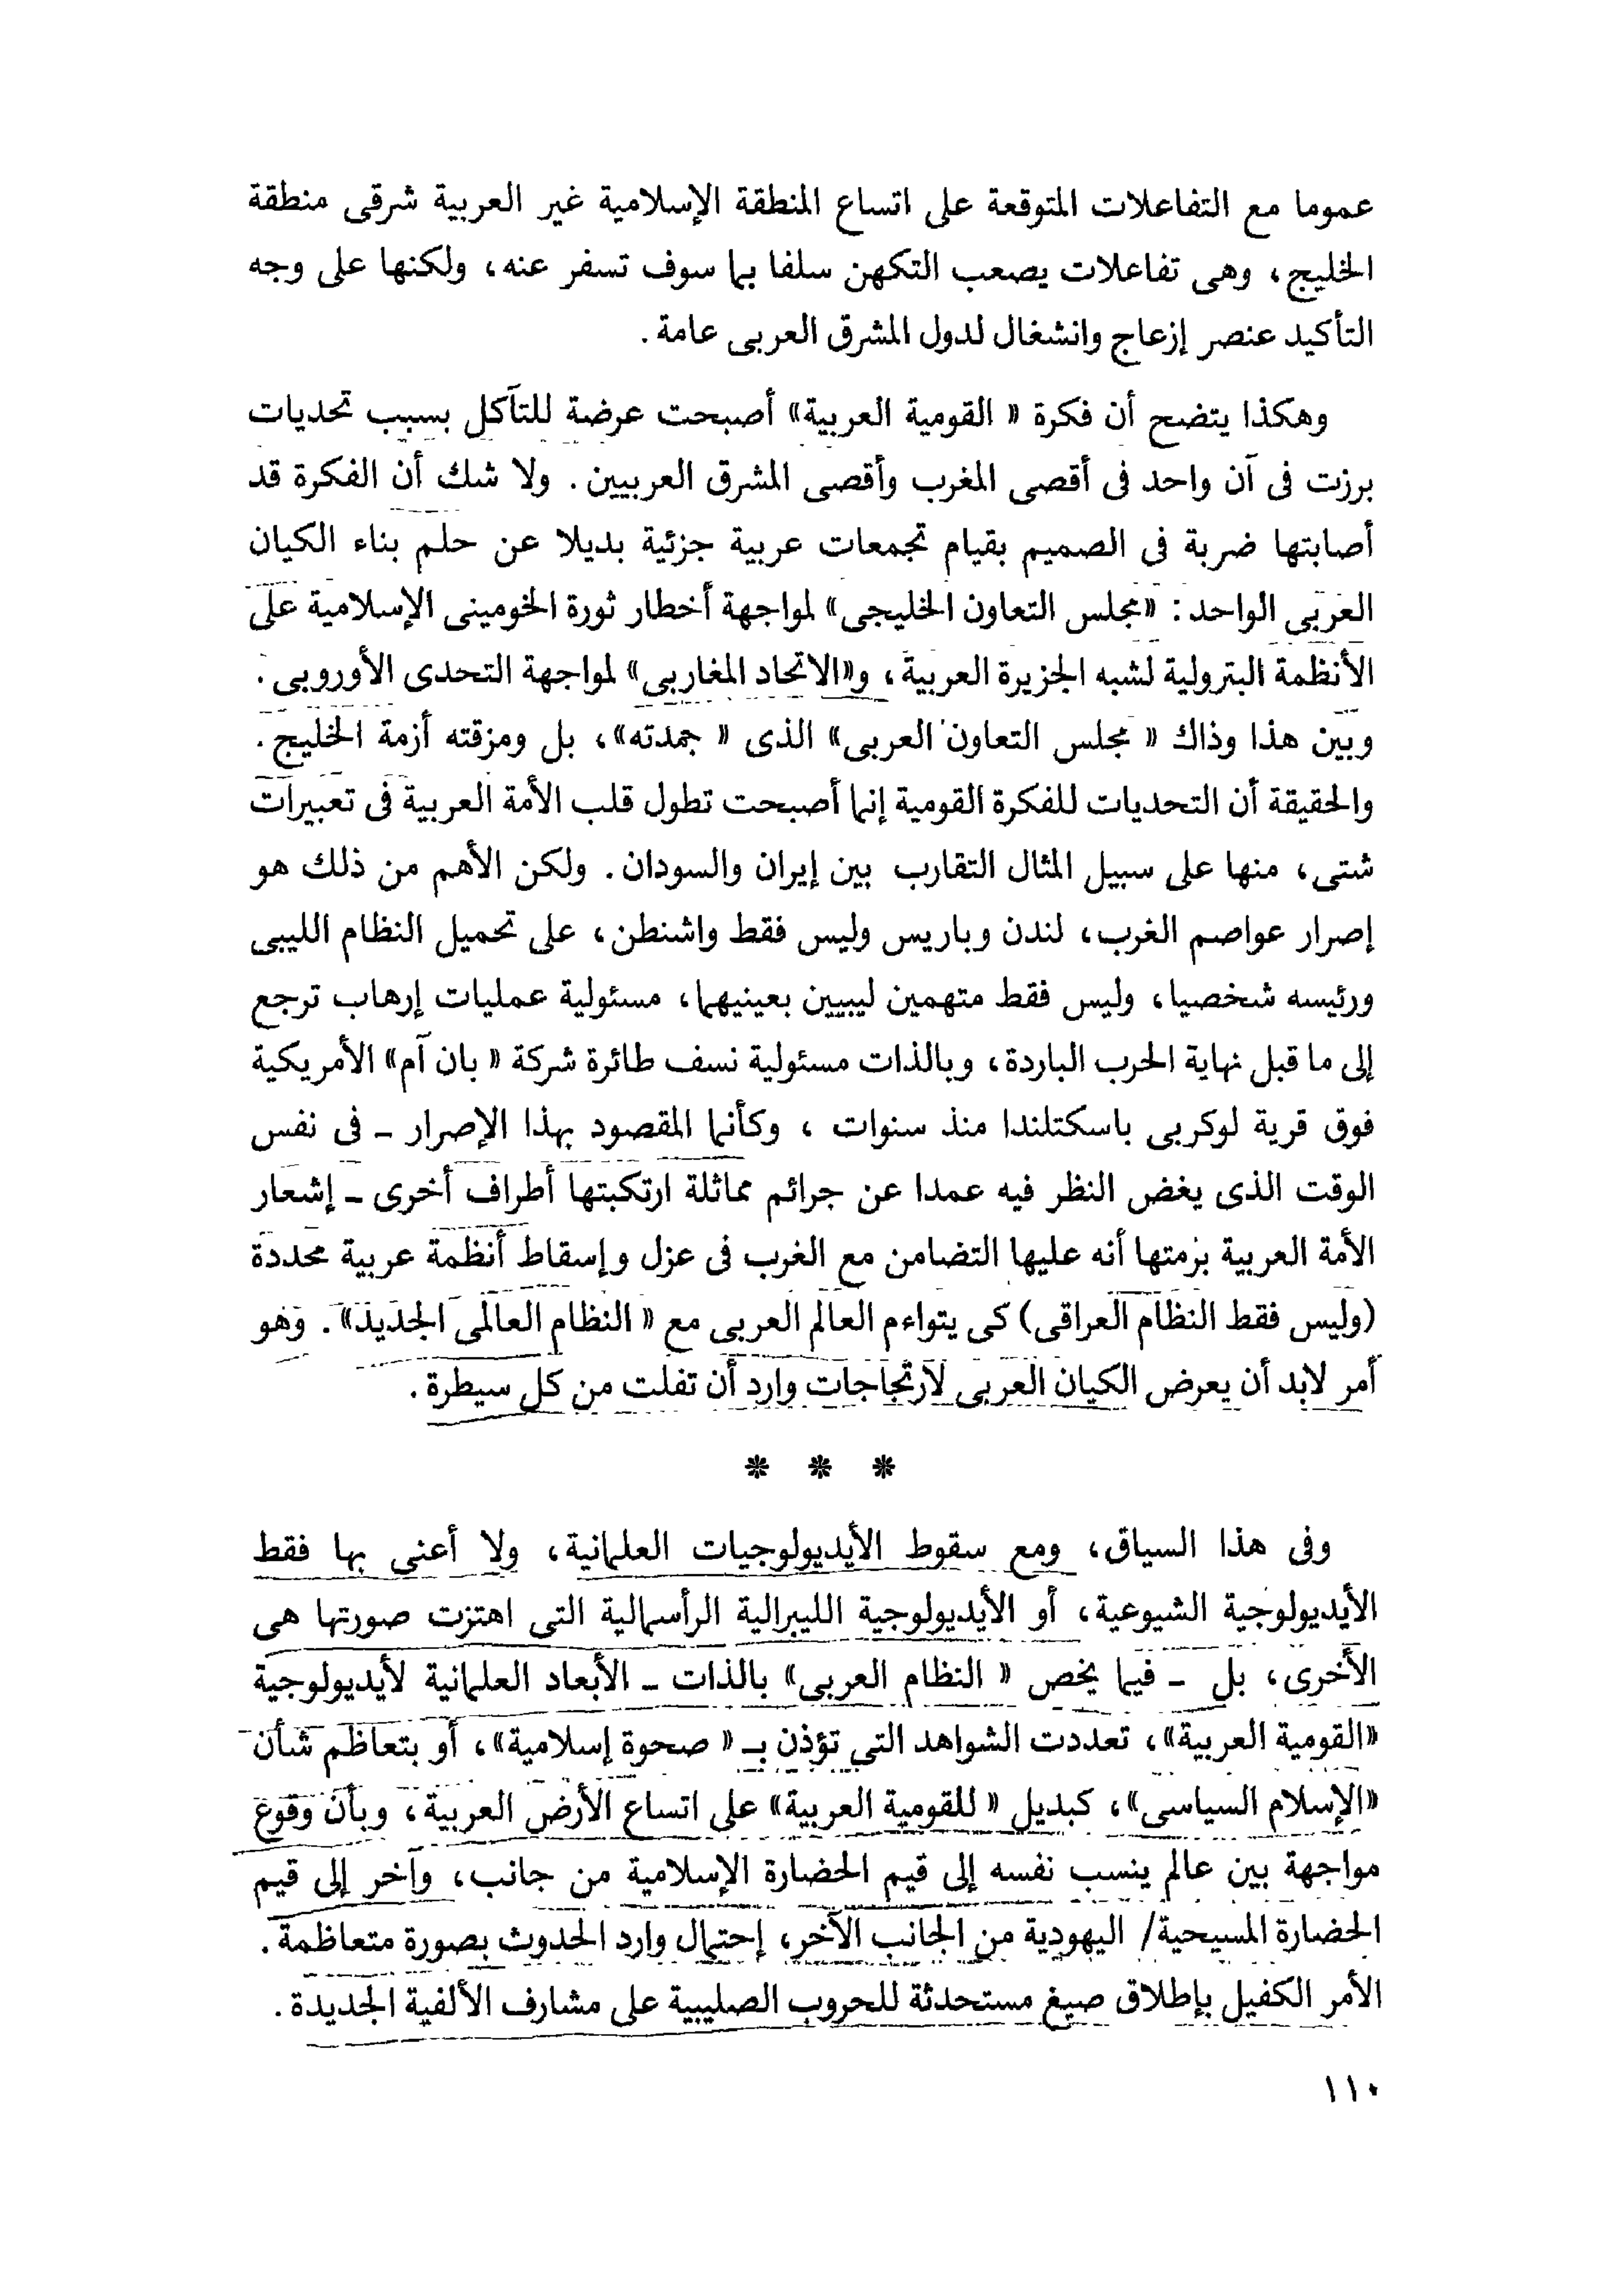 عموما مع التفاعلات المتوقعة على اتساع المنطقة الإسلامية غير العربية شرقى منطقة
الخليج، وهى تفاعلات يصعب التكهن سلفا بما سوف تسفر عنه، ولكنها على وجه
التأكيد عنصر إزعاج وانشغال لدول المشرق العربى عامة.
وهكذا يتضح أن فكرة « القومية العربية» أصبحت عرضة للتآكل بسبب تحديات
برزت فى آن واحد فى أقصى المغرب وأقصى المشرق العربيين. ولا شك أن الفكرة قد
أصابتها ضربة فى الصميم بقيام تجمعات عربية جزئية بديلا عن حلم بناء الكيان
العربى الواحد: «مجلس التعاون الخليجى» لمواجهة أخطار ثورة الخومينى الإسلامية على
الأنظمة البترولية لشبه الجزيرة العربية، و«الاتحاد المغاربى» لمواجهة التحدى الأوروبى.
وبين هذا وذاك « مجلس التعاون العربى» الذى « جمدته»، بل ومزقته أزمة الخليج.
والحقيقة أن التحديات للفكرة القومية إنما أصبحت تطول قلب الأمة العربية فى تعبيرات
شتى، منها على سبيل المثال التقارب بين إيران والسودان. ولكن الأهم من ذلك هو
إصرار عواصم الغرب، لندن وباريس وليس فقط واشنطن، على تحميل النظام الليبى
ورئيسه شخصيا، وليس فقط متهمين ليبيين بعينيهما، مسئولية عمليات إرهاب ترجع
إلى ما قبل نهاية الحرب الباردة، وبالذات مسئولية نسف طائرة شركة « بان آم» الأمريكية
فوق قرية لوكربى باسكتلندا منذ سنوات ، وكأنما المقصود بهذا الإصرار ـ فى نفس
الوقت الذى يغض النظر فيه عمدا عن جرائم مماثلة ارتكبتها أطراف أخرى ـ إشعار
الأمة العربية بزمتها أنه عليها التضامن مع الغرب فى عزل وإسقاط أنظمة عربية محددة
(وليس فقط النظام العراقى) كى يتواءم العالم العربى مع « النظام العالمى الجديد». وهو
أمر لابد أن يعرض الكيان العربى لارتجاجات وارد أن تفلت من كل سيطرة.
* * *
وفى هذا السياق، ومع سقوط الأيديولوجيات العلمانية، ولا أعنى بها فقط
الأيديولوجية الشيوعية، أو الأيديولوجية الليبرالية الرأسمالية التى اهتزت صورتها هى
الأخرى، بل ـ فيما يخص « النظام العربى» بالذات ـ الأبعاد العلمانية لأيديولوجية
«القومية العربية»، تعددت الشواهد التى تؤذن بـ « صحوة إسلامية»، أو بتعاظم شأن
«الإسلام السياسى»، كبديل « للقومية العربية» على اتساع الأرض العربية، وبأن وقوع
مواجهة بين عالم ينسب نفسه إلى قيم الحضارة الإسلامية من جانب، وآخر إلى قيم
الحضارة المسيحية/ اليهودية من الجانب الآخر، إحتمال وارد الحدوث بصورة متعاظمة.
الأمر الكفيل بإطلاق صيغ مستحدثة للحروب الصليبية على مشارف الألفية الجديدة.
١١٠